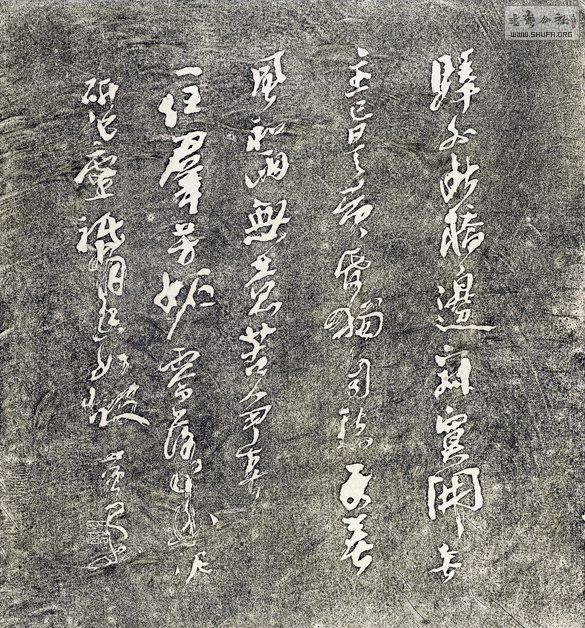 驛外斷橋邊寂寞開無
主已是黃昏獨自愁更著
風和雨無意苦爭春
一任羣芳妒零落成泥
碾作塵祇有香如故
WWW.SHUFA.ORG